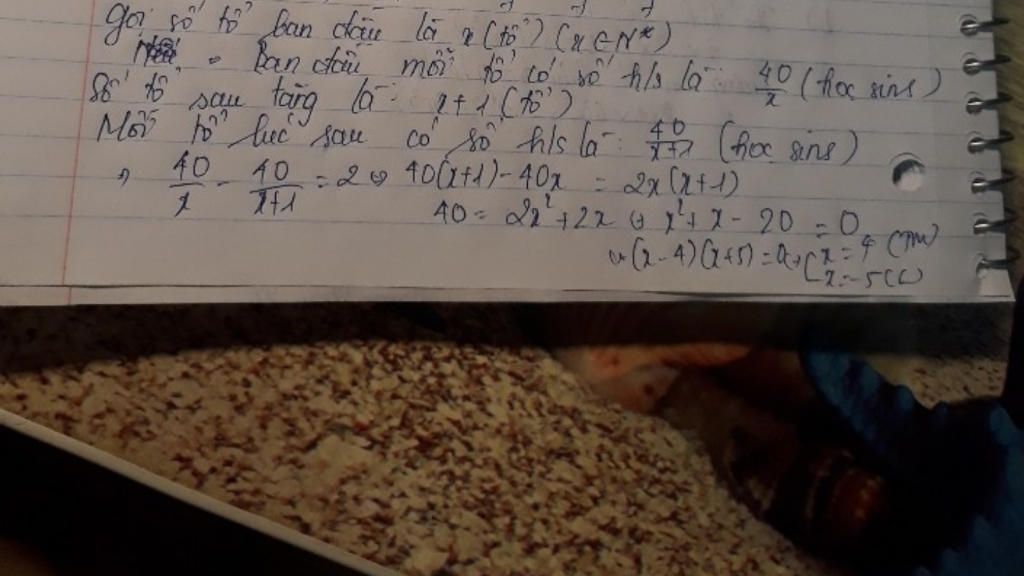 Gọi số tổ ban đầu là x (tổ) (x ∈ N*)
ban đầu mỗi tổ có số h/s là: 40/x (học sinh)
Số tổ sau tăng là: x+1 (tổ)
Mỗi tổ lúc sau có số h/s là: 40/(x+1) (học sinh)
⇒ 40/x - 40/(x+1) = 2 ⇔ 40(x+1) - 40x = 2x(x+1)
40 = 2x² + 2x ⇔ x² + x - 20 = 0
⇔ (x-4)(x+5) = 0 ⇔ [x = 4 (TM)
x = -5 (L)